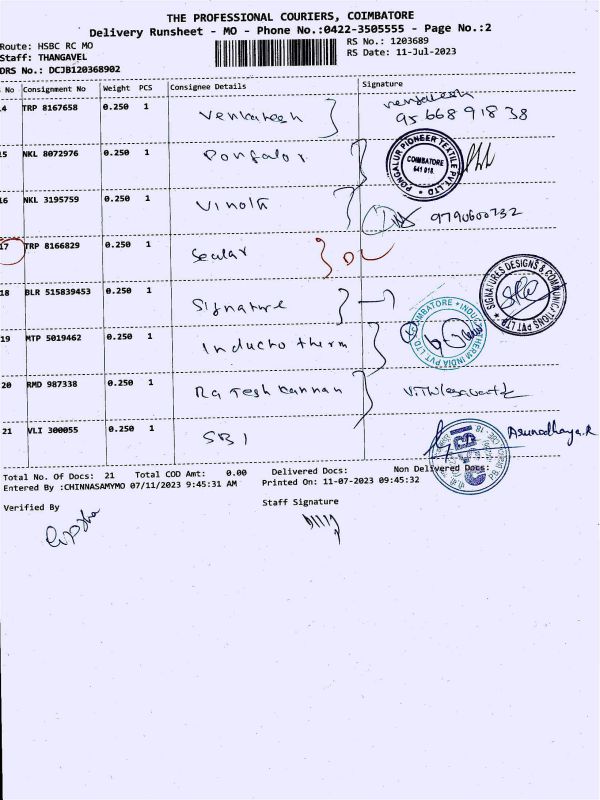 THE PROFESSIONAL COURIERS, COIMBATORE
Delivery Runsheet - MO - Phone No.:0422-3505555 - Page No.:2
Route: HSBC RC MO
RS No.: 1203689
Staff: THANGAVEL
RS Date: 11-Jul-2023
DRS No.: DCJB120368902
No Consignment No Weight PCS Consignee Details Signature
4 TRP 8167658 0.250 1 Venkatesh venkatesh
95668 91838
15 NKL 8072976 0.250 1 Pongalor PONGALUR PIONEER TEXTILE PVT. LTD. COIMBATORE 641 018.
16 NKL 3195759 0.250 1 Vinoth 9790600732
17 TRP 8166829 0.250 1 Seular
18 BLR 515839453 0.250 1 Signature SIGNATURES DESIGNS & COMMUNICATIONS PVT LTD
19 MTP 5019462 0.250 1 Inductotherm COIMBATORE INDUCTOTHERM INDIA PVT. LTD.
20 RMD 987338 0.250 1 Rajesh kannan
21 VLI 300055 0.250 1 SBI Arunodhaya.R
Total No. Of Docs: 21 Total COD Amt: 0.00 Delivered Docs: Non Delivered Docs:
Entered By :CHINNASAMYMO 07/11/2023 9:45:31 AM Printed On: 11-07-2023 09:45:32
Verified By Staff Signature